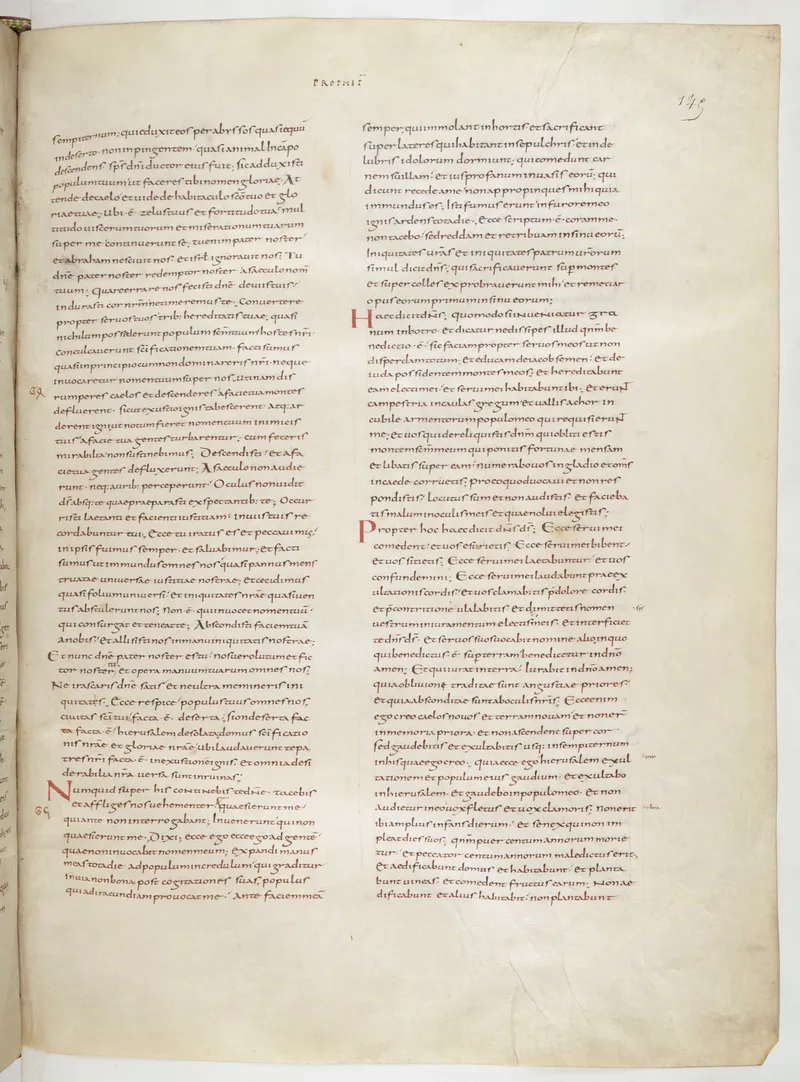 PROPHET
149
sempiternum; qui eduxit eos per abyssos quasi equū
indeserto non inpingentem; quasi animal Incāpo
descendens sp̄s dn̄i ductor eius fuit; sic adduxisti
populum tuum ut faceres tibi nomen gloriae; At
tende decaelo et uide de habitaculo sc̄o tuo et glo
riae tuae; Ubi ē zelus tuus et fortitudo tua; mul
titudo uiscerum tuorum et miserationum tuarum
super me continuerunt se; tu enim pater noster
et abraham nesciuit nos; et isrl ignorauit nos; Tu
dn̄e pater noster redemptor noster Asaeculo nom̄
tuum; Quare errare nos fecisti dn̄e deuiis tuis;
indurasti cor nr̄m ne timeremus te; Conuertere
propter seruos tuos trib; hereditatis tuae; quasi
nichilum possiderunt populum sc̄m tuum; hostes nr̄i;
Conculcauerunt sc̄ificationem tuam; facti sumus
quasi in principio cum non dominareris nr̄i; neque
inuocaretur nomen tuum super nos; Utinam dis
rumperes caelos et descenderes; Afacie tua montes
defluerent; sicut exustio ignis tabescerent; Atq; ar
derent igni; ut notum fieret nomen tuum inimicis
tuis; Afacie tua gentes turbarentur; cum feceris
mirabilia non sustinebimus; Descendisti; et afa
cie tua gentes defluxerunt; Asaeculo non audie
runt; neq; aurib; perceperunt; Oculus non uidit
ds̄ absq; te quae praeparasti exspectantib; te; Occur
risti laetanti et facienti iustitiam; in uiis tuis re
cordabuntur tui; Ecce tu iratus es et peccauimus;
in ipsis fuimus semper; et saluabimur; et facti
sumus ut immundus omnes nos quasi pannus mens
truatae uniuersae iustitiae nostrae; et cecidimus
quasi folium uniuersi; et iniquitates nr̄ae quasi uen
tus abstulerunt nos; Non ē qui inuocet nomen tuū;
qui consurgat et teneat te; Abscondisti faciem tuā
Anobis; et allisisti nos inmanu iniquitatis nostrae;
Et nunc dn̄e pater noster es tu; nos uero lutum; et fic
tor noster tu; et opera manuum tuarum omnes nos;
Ne irascaris dn̄e satis et ne ultra memineris ini
quitatis; Ecce respice; populus tuus omnes nos;
ciuitas sc̄i tui facta ē deserta; sion deserta fac
ta facta ē; hierusalem desolata; domus sc̄ificatio
nis nr̄ae et gloriae nr̄ae; ubi laudauerunt te pa
tres nr̄i facta ē inexustionē ignis; et omnia desi
derabilia nr̄a uersa sunt inruinas;
Numquid super his continebis te dn̄e; tacebis
et affliges nos uehementer; Quaesierunt me;
qui ante non interrogabant; Inuenerunt qui non
quaesierunt me; Dixi; ecce ego ecce ego ad gentē
quae non inuocabat nomen meum; expandi manus
meas tota die ad populum incredulum; qui graditur
in uia non bona post cogitationes suas; populus
qui adiracundiam prouocat me; Ante faciem meā
semper; qui immolant in hortis et sacrificant
super lateres; qui habitant in sepulchris; et in de
lubris idolorum dormiunt; qui comedunt car
nem suillam; et ius profanum inuasis eorū; qui
dicunt recede Ame; non appropinques mihi quia
immundus es; Isti fumus erunt in furore meo
ignis ardens tota die; Ecce scriptum ē coram me;
non tacebo; sed reddam et retribuam in sinu eorū;
Iniquitates ur̄as et iniquitates patrum ur̄orum
simul dicit dn̄s; qui sacrificauerunt sup montes
et super colles exprobrauerunt mihi; et remetiar
opus eorum primum in sinu eorum;
Haec dicit dn̄s; Quomodo si inueniatur gra
num in botro; et dicatur ne dissipes illud qn̄m be
nedictio ē; sic faciam propter seruos meos ut non
disperdam totum; et educam de iacob semen; et de
iuda possidentem montes meos; et hereditabunt
eam electi mei; et serui mei habitabunt ibi; et erunt
campestria in caulas gregum; et uallis achor in
cubile armentorum populo meo qui requisierunt
me; et uos qui dereliquistis dn̄m qui obliti estis
montem sc̄m meum; qui ponitis fortunae mensam
et libatis super eam; numerabo uos in gladio et om̄s
in caede corruetis; pro eo quod uocaui et non res
pondistis; Locutus sum et non audistis; et facieba
tis malum in oculis meis et quae nolui elegistis;
Propter hoc haec dicit dn̄s ds̄; Ecce serui mei
comedent; et uos esurietis; Ecce serui mei bibent;
et uos sitietis; Ecce serui mei laetabuntur; et uos
confundemini; Ecce serui mei laudabunt prae ex
ultatione cordis; et uos clamabitis p dolore cordis;
et p contritione ululabitis; et dimittetis nomen
uestrum iniuramentum electis meis; et interficiet
te dn̄s ds̄; et seruos suos uocabit nomine alio; in quo
qui benedictus ē super terram benedicetur in dn̄o
amen; et qui iurat in terra; Iurabit in dn̄o amen;
quia obliuioni traditae sunt angustiae priores;
et quia absconditae sunt ab oculis nr̄is; Ecce enim
ego creo caelos nouos et terram nouam; et non er̄
in memoria priora; et non ascendent super cor
sed gaudebitis et exultabitis usq; in sempiternum
in his quae ego creo; quia ecce ego hierusalem exul
tationem et populum eius gaudium; et exultabo
in hierusalem; et gaudebo in populo meo; et non
Audietur in eo uox fletus et uox clamoris; Non erit
ibi amplius infans dierum; et senex qui non im
pleat dies suos; qn̄m puer centum annorum morie
tur; et peccator centum annorum maledictus erit;
et aedificabunt domus et habitabunt; et planta
bunt uineas; et comedent fructus earum; Non ae
dificabunt et alius habitabit; non plantabunt